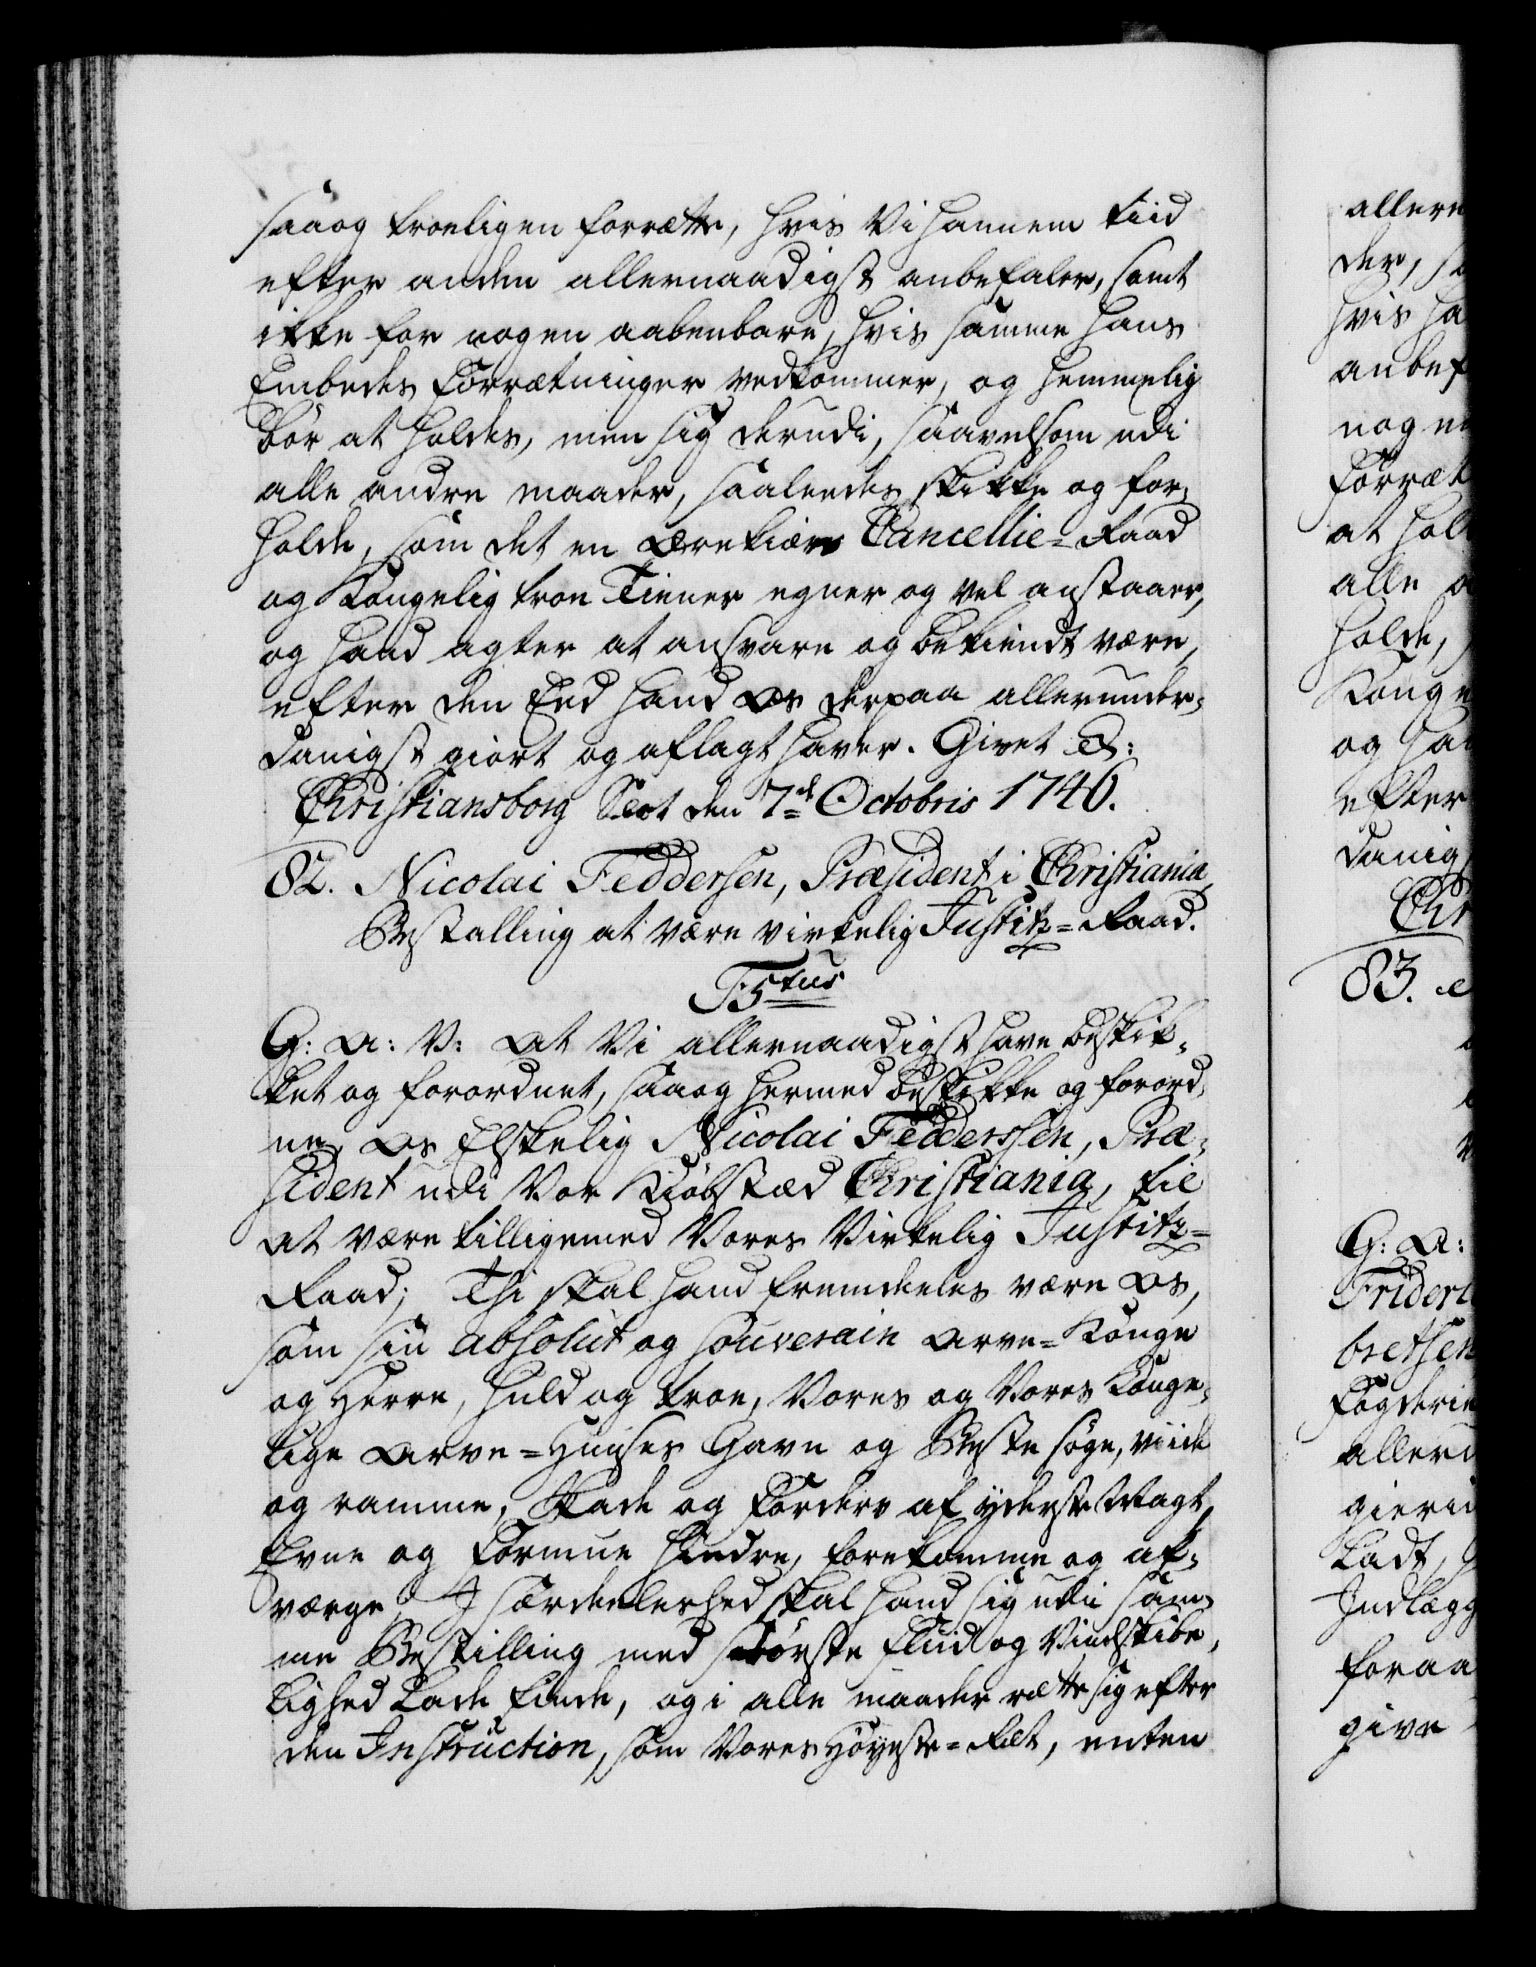 saaog troeligen forrætte, hvis Vi hannem tiid
efter anden allernaadigst anbefaler, samt
ikke for nogen aabenbare, hvis samme hans
Embedes Forrætninger vedkommer, og hemmelig
bör at holdes, men sig derudi, saavelsom udi
alle andre maader, saaledes skikke og for-
holde, som det en ærekiær Cancellie-Raad
og Kongelig troe Tiener egner og vel anstaaer,
og hand agter at ansvare og bekiendt være,
efter den Eed hand Os derpaa allerunder-
danigst giort og aflagt haver. Givet &:
Christiansborg Slot den 7de Octobris 1746.
82. Nicolai Feddersen, Præsident i Christiania,
Bestalling at være virkelig Justitz-Raad.
F5tus
G: A: V: At Vi allernaadigst have beskik-
ket og forordnet, saaog hermed beskikke og forord-
ne, Os Elskelig Nicolai Feddersen, Præ-
sident udi Vor Kiöbstæd Christiania, til
at være tilligemed Vores Virkelig Justitz-
Raad; Thi skal hand fremdeeles være Os,
som sin absolut og souverain Arve-Konge
og Herre, huld og troe, Vores og Vores Konge-
lige Arve-Huuses Gavn og Beste söge, viide
og ramme, Skade og Forderv af yderste Magt,
Evne og Formue hindre, forekomme og af-
værge. I særdeeleshed skal hand sig udi sam-
me Bestilling med störste Fliid og Vindskibe-
lighed lade finde, og i alle maader rette sig efter
den Instruction, som Vores Höyeste-Ret, enten
allern
der, sa
hvis ha
anbef
nogen
Forræt
at hold
alle a
holde,
Konge
og ha
efter
danig
Chr
83.
G: A:
Frideri
bretsen
Fogderie
alleru
gieri
ladt,
Indlægg
foraa
give